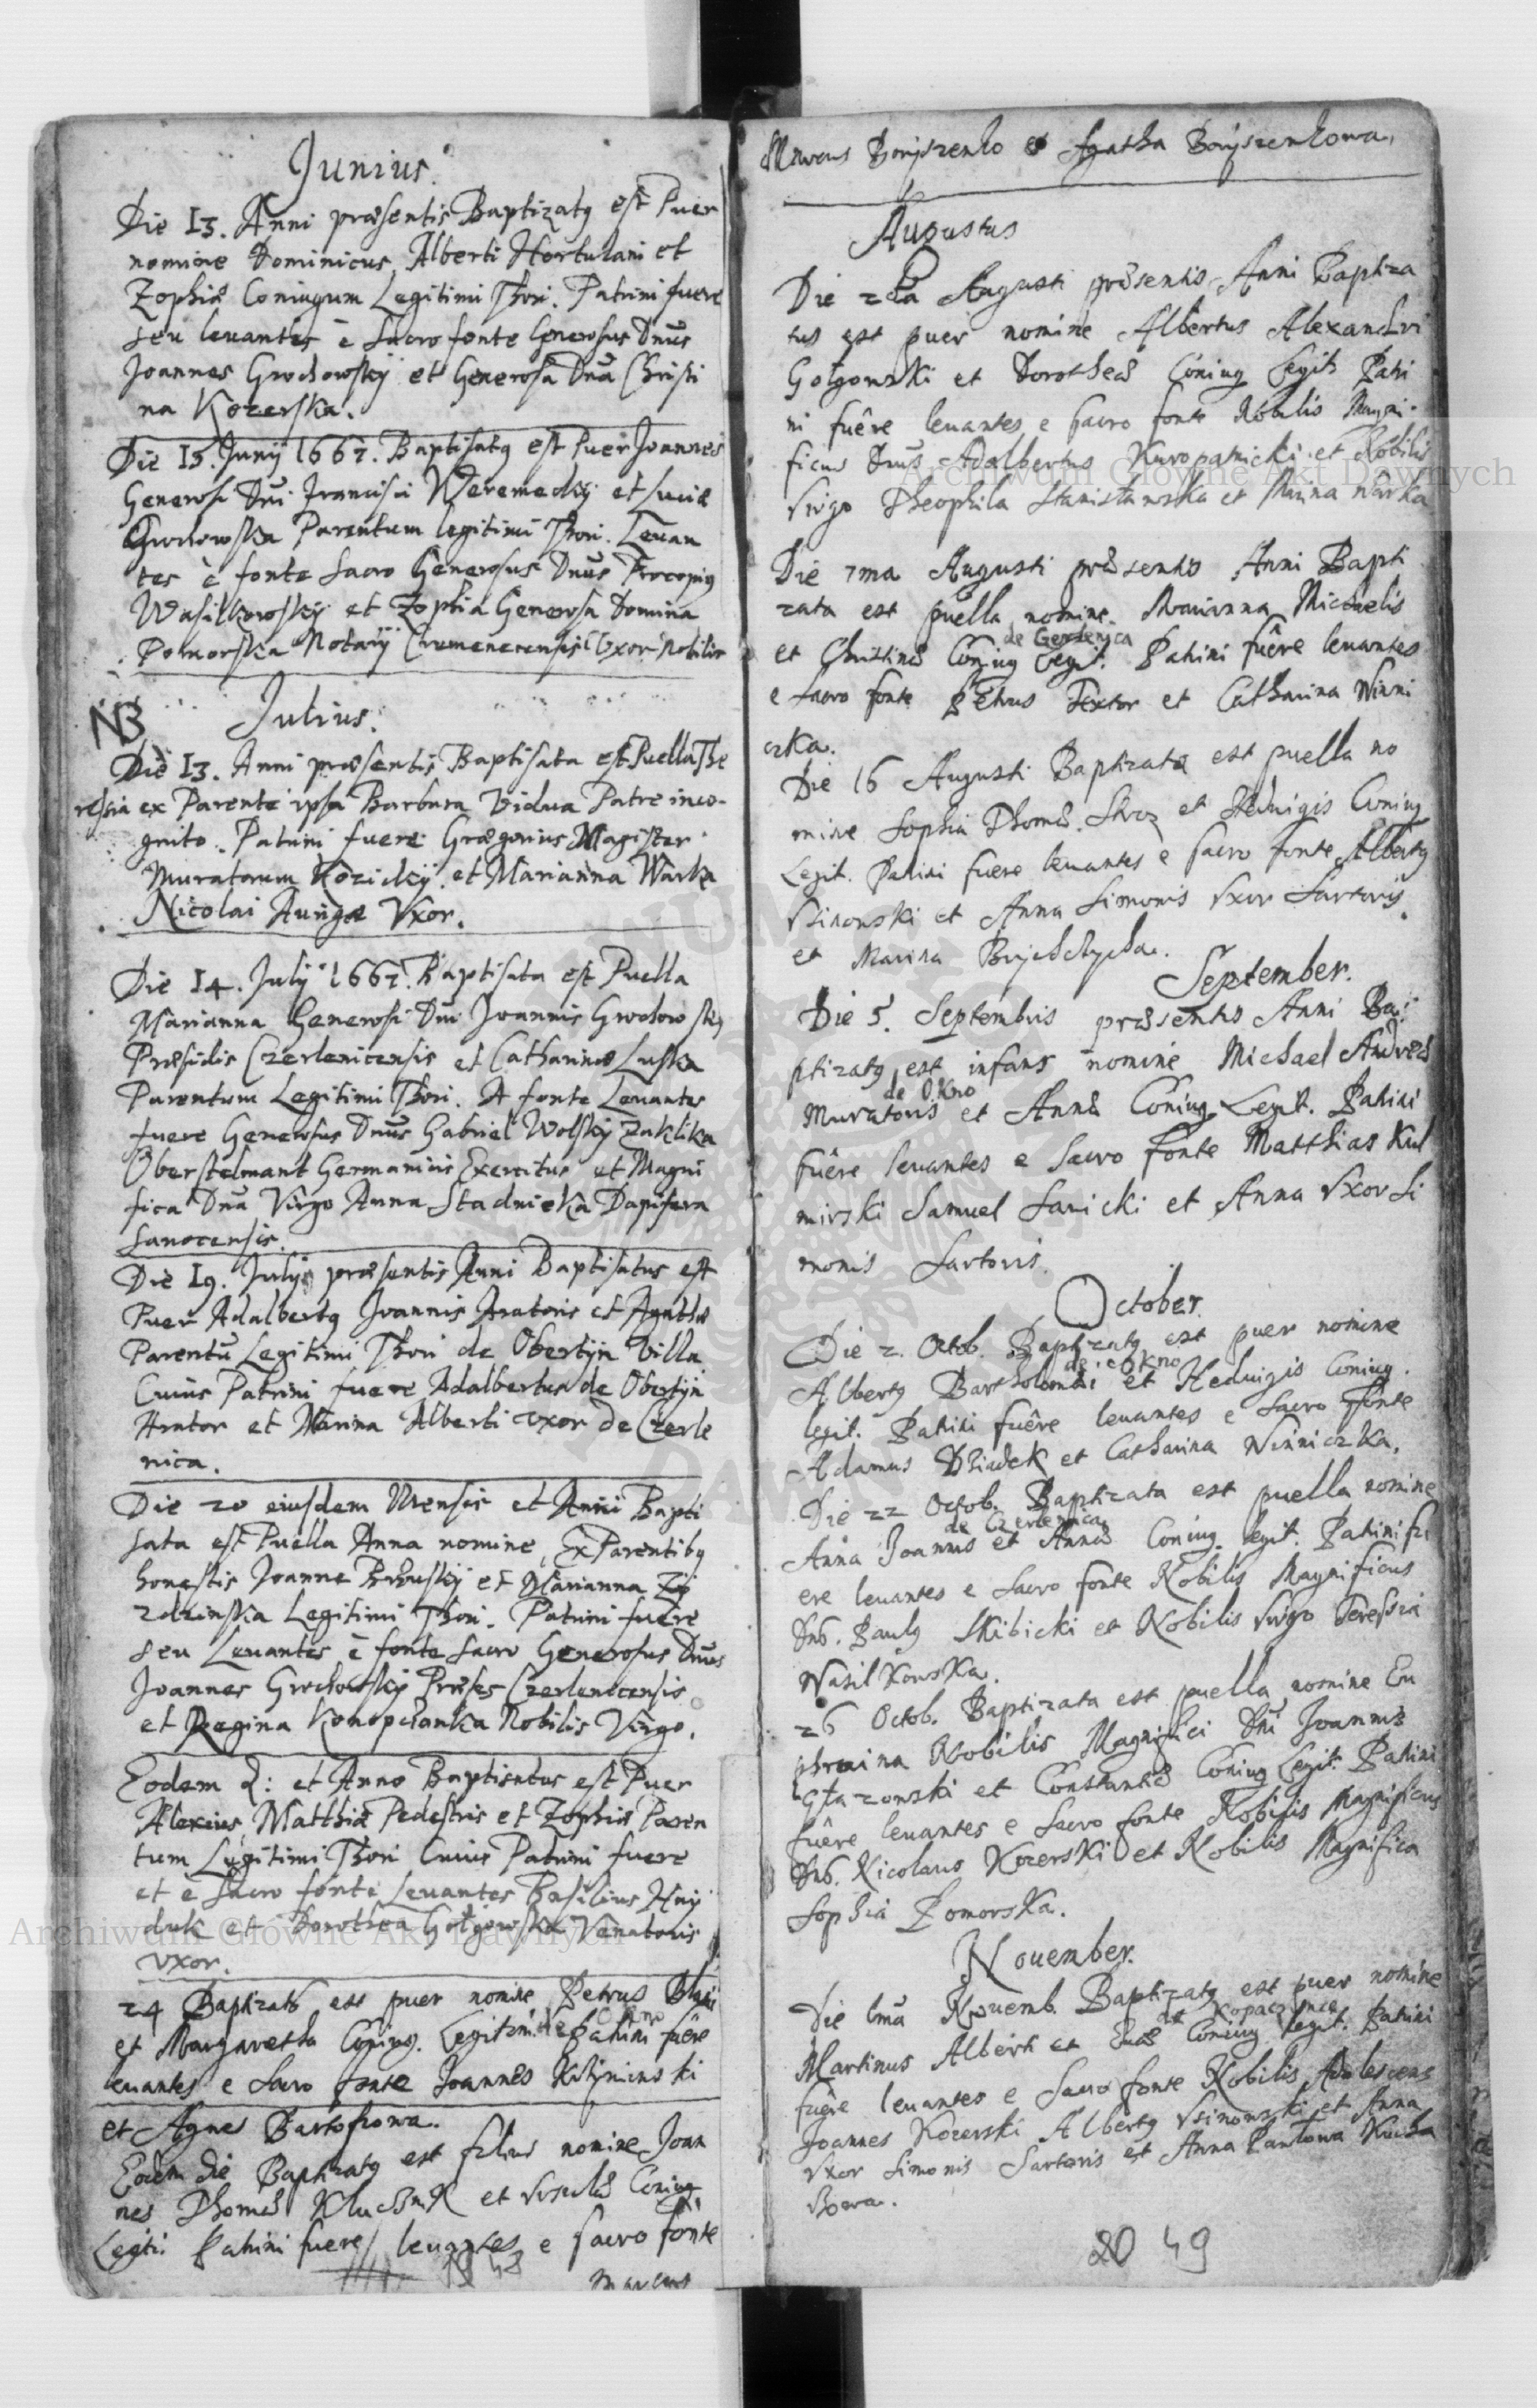 Junius.
Die 13. Anni præsentis Baptizatq est Puer
nomine Dominicus Alberti Hortulani et
Zophiæ Coniugum Legitimi Thori. Patrini fuere
seu leuantes è sacro fonte Generosus Dnus
Joannes Grochowskÿ et Generosa Dna Christi
na Kozerska.
Die 15. Junÿ 1667. Baptisatq est Puer Joannes
Generosi Dni Francisci Weremeckÿ et Luciæ
Grochowska Parentum legitimi Thori. Leuan
tes è fonte sacro Generosus Dnus Procopiq
Wasilkowskÿ et Zophia Generosa Domina
Pomorska Notarÿ Cremenecensis Vxor Nobilis
NB Julius.
Die 13. Anni præsentis Baptisata est Puella The
ressia ex Parente ipsa Barbara Vidua Patre inco-
gnito. Patrini fuere Grægorius Magister
Muratorum Kozickÿ et Marianna Warka
Nicolai Aurigæ Vxor.
Die 14. Julÿ 1667. Baptisata est Puella
Marianna Generosi Dni Joannis Grochowskÿ
Præsidis Czerlenicensis et Catharinæ Luska
Parentum Legitimi Thori. A fonte Leuantes
fuere Generosus Dnus Gabriel Wolskÿ Zaklika
Oberstelmant Germaniis Exercitus et Magni
fica Dna Virgo Anna Stadnicka Dapifera
Sanocensis.
Die 19. Julÿ præsentis Anni Baptisatus est
Puer Adalbertq Joannis Aratoris et Agathæ
Parentũ Legitimi Thori de Obertÿn Villa
Cuius Patrini fuere Adalbertus de Obertÿn
Arator et Marina Alberti vxor de Czerle
nica.
Die 20 eiusdem Mensis et Anni Bapti
sata est Puella Anna nomine, Ex Parentibq
honestis Joanne et Marianna Zÿ
Legitimi Thori. Patrini fuere
seu Leuantes è fonte sacro Generosus Dnus
Joannes Grochowskÿ Præses Czerlenicensis
et Regina Konopcianka Nobilis Virgo.
Eodem d: et Anno Baptisatus est Puer
Alexius Matthiæ Pedestris et Zophiæ Paren
tum Legitimi Thori Cuius Patrini fuere
et è sacro fonte Leuantes Basilius Haÿ
duk et Dorothea Gołgowska Venatoris
vxor.
24 Baptizatq est puer nomine Petrus
et Margaretha Coniug. Legitimi Patrini fuêre
leuantes e sacro fonte Joannes
et Agnes Bartoszowa.
Eadem die Baptizatq est filius nomine Joan
nes Thomæ et Vrsulæ Coniug
Legit: Patrini fuere leuantes e sacro fonte
48
Marcus
Marcus Boryszenko et Agatha Boryszenkowa,
Augustus
Die 2da Augusti præsentis Anni Baptiza
tus est puer nomine Albertus Alexandri
Gołgowski et Dorotheæ Coniug Legit. Patri
ni fuêre leuantes e sacro fonte Nobilis Magni-
ficus Dnus Adalbertus Kuropatnicki et Nobilis
Virgo Theophila Stanisławska et Marina Warka
Die 7ma Augusti præsentis Anni Bapti
zata est puella nomine Marianna Michaelis
de Czerlenica
et Christinæ Coniug Legit. Patrini fuêre leuantes
e sacro fonte Petrus Textor et Catharina Winni
czka.
Die 16 Augusti Baptizata est puella no
mine Sophia Thomæ et Heduigis Coniug
Legit. Patrini fuere leuantes e sacro fonte Albertq
Vsinowski et Anna Simonis Vxor Sartoris
et Marina
September.
Die 5. Septembris præsentis Anni Ba:
ptizatq est infans nomine Michael Andreæ
de Okno
Muratoris et Annæ Coniug Legit. Patrini
fuêre leuantes e sacro fonte Matthias Kul
mirski Samuel Sanicki et Anna Vxor Si
monis Sartoris.
October.
Die 2. Octob. Baptizatq est puer nomine
de Okno
Albertq Bartholomæi et Heduigis Coniug.
legit. Patrini fuêre leuantes e sacro fonte
Adamus Dziadek et Catharina Winniczka.
Die 22 Octob. Baptizata est puella nomine
de Czerlenica
Anna Joannis et Annæ Coniug. legit. Patrini fu
ere leuantes e sacro fonte Nobilis Magnificus
Dnus. Paulq Skibicki et Nobilis Virgo Teressia
Wasilkowska.
26 Octob. Baptizata est puella nomine Eu
phrosina Nobilis Magnifici Dni Joannis
Głazowski et Constantiæ Coniug Legit. Patrini
fuêre leuantes e sacro fonte Nobilis Magnificus
Dnus. Nicolaus Kozerski et Nobilis Magnifica
Sophia Pomorska.
Nouember.
Die 1ma Nouemb. Baptizatq est puer nomine
de Kopaczynce
Martinus Alberti et Euæ Coniug legit. Patrini
fuêre leuantes e sacro fonte Nobilis Adolescens
Joannes Kozerski Albertq Vsinowski et Anna
Vxor Simonis Sartoris et Anna Pawłowa Kucha
rzowa.
49
Archiwum Główne Akt Dawnych
Archiwum Główne Akt Dawnych